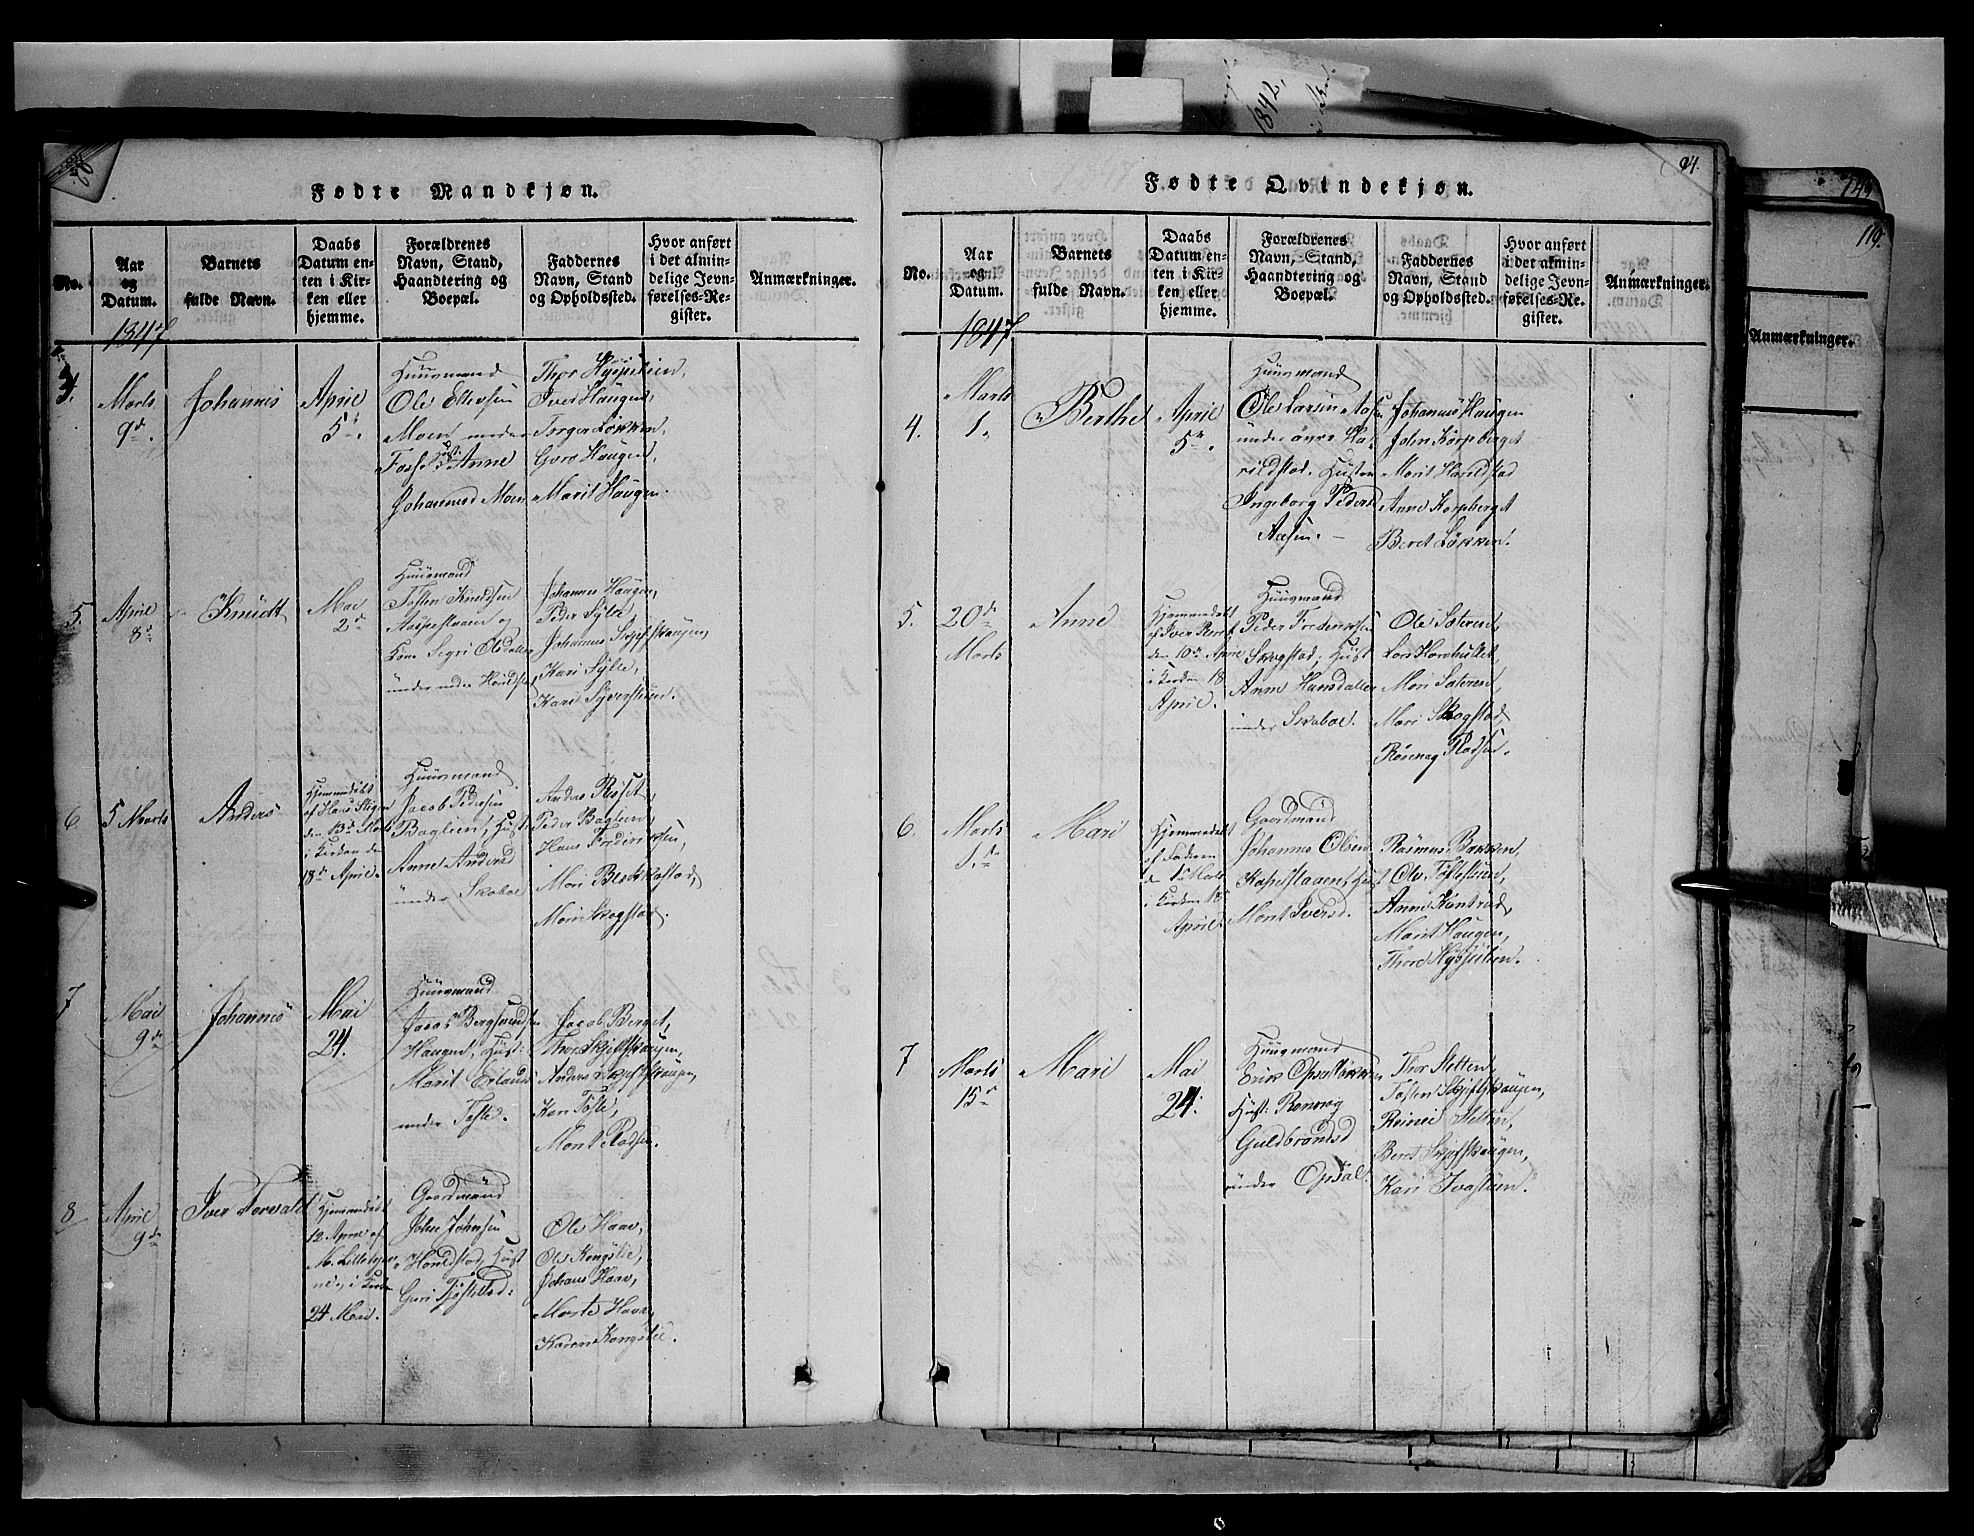 Fødte Mandkjøn.
No.
Aar
og
Datum.
Barnets
fulde Navn.
Daabs
Datum en-
ten i Kir-
ken eller
hjemme.
Forældrenes
Navn, Stand,
Haandtering og
Boepæl.
Faddernes
Navn, Stand
og Opholdssted.
Hvor anført
i det almin-
delige Jevn-
førelses-Re-
gister.
Anmærkninger.
1847
4.
Marts
9de.
Johannes
April
5te.
Huusmand
Ole Ellevsen
Moen under
Tofse Hust. Anne
Johannesd Moen
Iver Haugen,
Torger Løkken,
Goro Haugen,
Marit Haugen.
5.
April
8de
Knudt
Mai
2de
Huusmand
Tosten Knudsen
og
Kone Sigri Olsdatter
under nedre
Johannes Haugen,
Peder Sylte,
Johannes
Kari Sylte,
Kari
6.
5 Marts
Anders
Hjemmedøbt
af Hans Stigen
den 13de Marts
i Kirken den
18de April.
Huusmand
Jacob Pedersen
Baglien, Hust:
Anne Andersd
under Skaboe
Anders Risset,
Peder Baglien,
Hans Frederiksen,
Mari
Mari Skogstad.
7
Mai
9de
Johannes
Mai
24.
Huusmand
Jacob
Haugen, Hust:
Marit Erlands
under Tofte.
Jacob Berget,
Thor Skjefskaugen,
Anders Skjefskaugen,
Kari Tofte,
Marit Pladsen.
8
April
9de
Iver Torvald
Hjemmedøbt
12 April af
i Kirken
24 Mai.
Goordmand
John Johnsen
Harildstad, Hust
Guri
Ole Haav,
Ole Kongslie,
Johans Haav,
Marte Haav,
Karen Kongslie.
Fødte Qvindekjøn.
94.
No.
Aar
og
Datum.
Barnets
fulde Navn.
Daabs
Datum en-
ten i Kir-
ken eller
hjemme.
Forældrenes
Navn, Stand,
Haandtering og
Boepæl.
Faddernes
Navn, Stand
og Opholdssted.
Hvor anført
i det almin-
delige Jevn-
førelses-Re-
gister.
Anmærkninger.
1847
4.
Marts
1.
Berthe
April
5te.
Huusmand
Ole Larsen Aasen
under øvre Ha-
rildstad. Hustru
Ingeborg Pedersd
Aasen.
Johannes Haugen
John Korpberget
Marit Harildstad
Anne Korpberget
Beret Løkken.
5.
20de
Marts
Anne
Hjemmedøbt
af Iver
den 10de April
i Kirken 18
April.
Huusmand
Peder Frederiksen
Skogstad, Hust
Anne Hansdatter
under Skaboe.
Ole Sæteren,
Lars
Mari Sæteren,
Mari Skogstad,
Pladsen.
6.
Marts
1.de
Mari
Hjemmedøbt
af Faderen
den 1 Marts
i Kirken 18
April.
Goordmand
Johannes Olsen
Hust
Marit Iversd.
Rasmus Bakken,
Ole
Anne
Marit Haugen,
Thore
7
Marts
15de
Mari
Mai
24.
Huusmand
Erik Opsalløkken
Hust: Rønnog
Guldbrandsd
under Opsal.
Thor Sletten,
Tosten Skjefskaugen,
Sletten,
Beret Skjefskaugen,
Kari
119.
Anmærkninger.
1842,